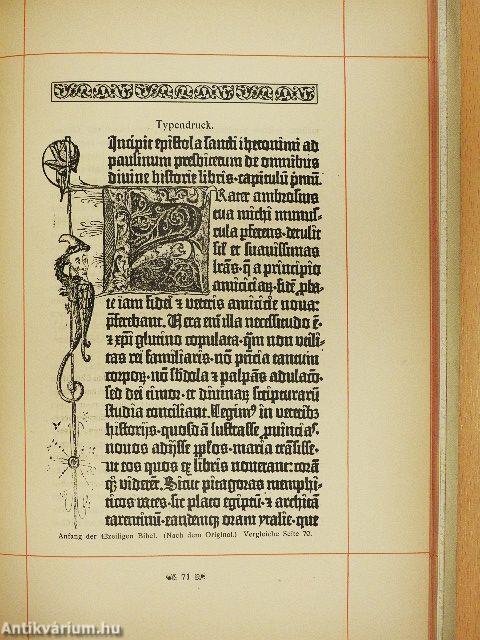 Typendruck.
Incipit epistola sancti iheronimi ad
paulinum presbiterum de omnibus
divine historie libris·capitulū pmū.
Frater ambrosius
tua michi munus-
cula pferens·detulit
sil et suavissimas
lras·q a principio
amiciciaꝝ·fidē pba-
te iam fidei ⁊ veteris amicicie nova:
pferebant. Vera eni illa necessitudo ē·
⁊ xpi glutino copulata·qm non utili-
tas rei familiaris·nō pncia tantum
corporꝝ·nō sbdola ⁊ palpās adulacō·
sed dei timor·et divinaꝝ scripturarū
studia conciliant. Legimꝰ in veteribꝫ
historijs·quosdā lustrasse puinciās·
novos adijsse pplos·maria trāsisse·
ut eos quos ex libris noverant: corā
qꝫ viderēt. Sicut pitagoras memphi-
ticos vates·sic plato egiptū·⁊ architā
tarentinū·eandemqꝫ oram ytalie·que
Anfang der 42zeiligen Bibel. (Nach dem Original.) Vergleiche Seite 70.
71
Antikvárium.hu